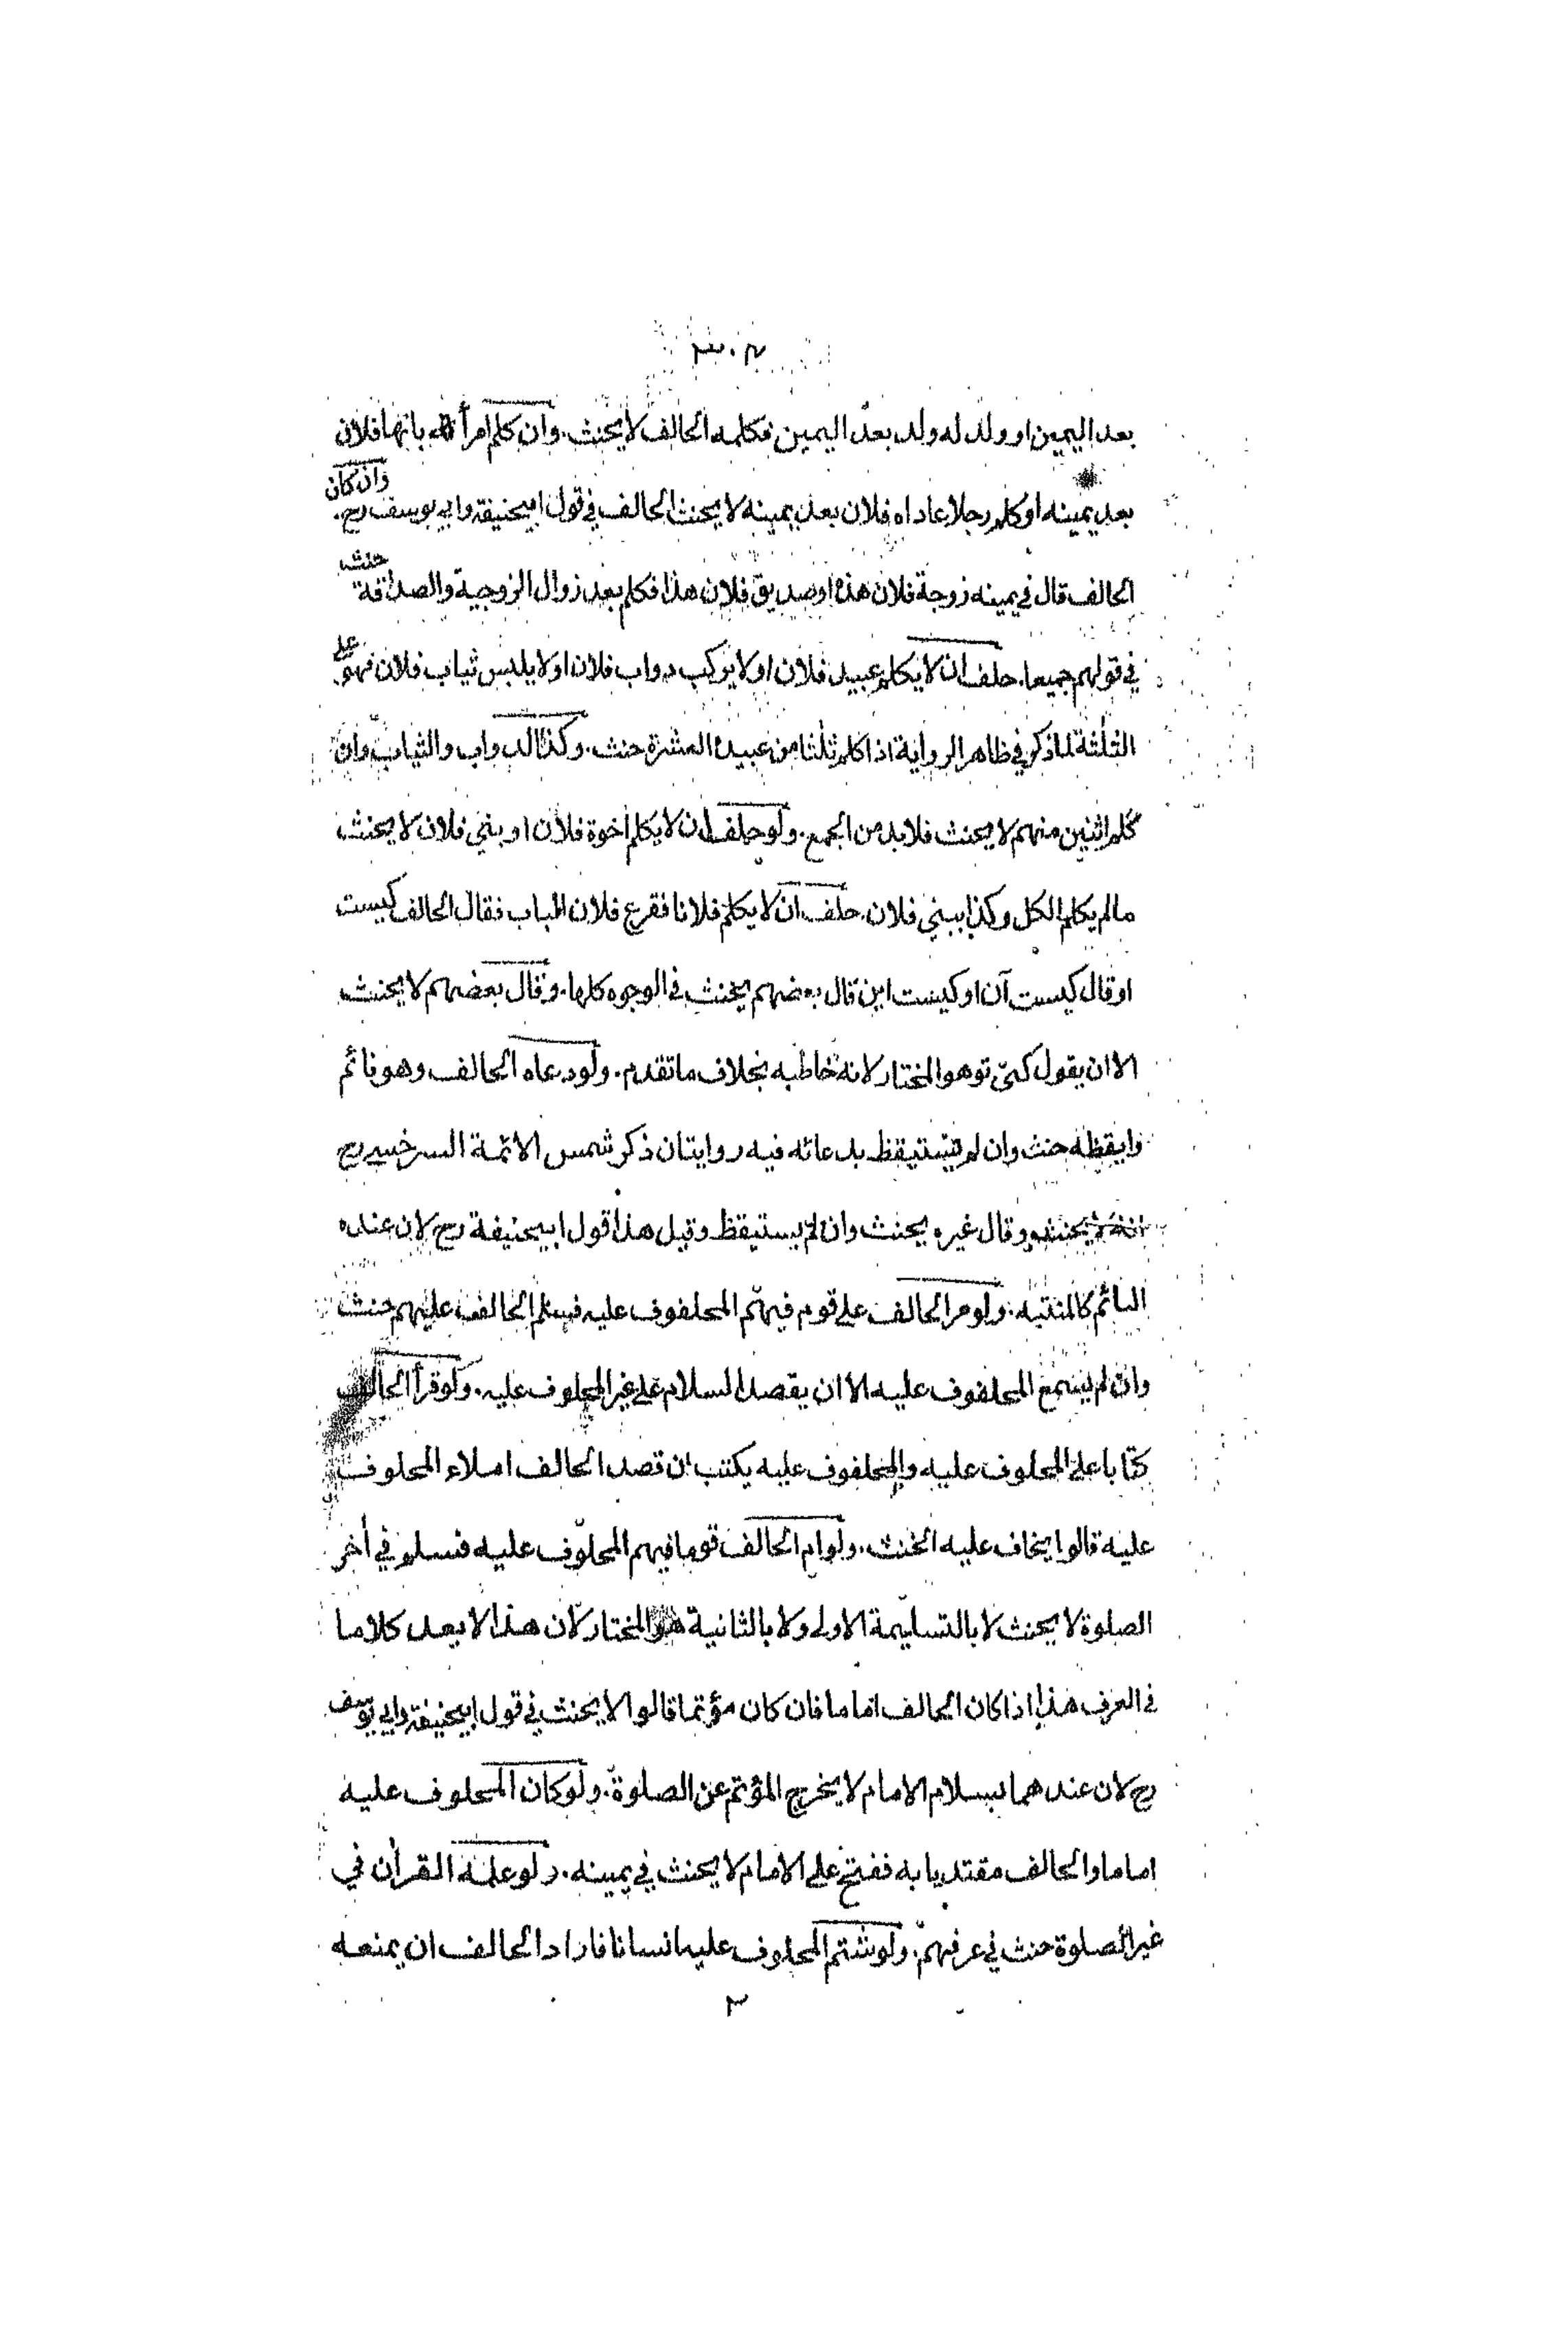 ٣٠٢
بعد اليمين او ولد له ولد بعد اليمين فكلمه الحالف لا يحنث. وان كلم امرأة بانها فلان
بعد يمينه او كلم رجلا عاداه فلان بعد يمينه لا يحنث الحالف في قول ابيحنيفة وابي يوسف رح. وان كان
الحالف قال في يمينه زوجة فلان هذه او صديق فلان هذا فكلم بعد زوال الزوجية والصداقة حنث
في قولهم جميعا. حلف ان لا يكلم عبيد فلان او لا يركب دواب فلان او لا يلبس ثياب فلان فهو على
الثلثة لما ذكر في ظاهر الرواية اذا كلم ثلثا من عبيده العشرة حنث. وكذا الدواب والثياب وان
كلم اثنين منهم لا يحنث فلا بد من الجمع. ولو حلف ان لا يكلم اخوة فلان او بني فلان لا يحنث
مالم يكلم الكل وكذا ببني فلان. حلف ان لا يكلم فلانا فقرع فلان الباب فقال الحالف كيست
او قال كيست آن او كيست اين قال بعضهم يحنث في الوجوه كلها. وقال بعضهم لا يحنث
الا ان يقول كئ تو هو المختار لانه خاطبه بخلاف ما تقدم. ولو دعاه الحالف وهو نائم
وايقظه حنث وان لم يستيقظ بدعائه فيه روايتان ذكر شمس الائمة السرخسي رح
انه لا يحنث وقال غيره يحنث وان لم يستيقظ وقيل هذا قول ابيحنيفة رح لان عنده
النائم كالمنتبه. ولو مر الحالف على قوم فيهم المحلفوف عليه فسلم الحالف عليهم حنث
وان لم يسمع المحلفوف عليه الا ان يقصد السلام على غير المحلوف عليه. ولو قرأ الحالف
كتابا على المحلوف عليه والمحلفوف عليه يكتب ان قصد الحالف املاء المحلوف
عليه قالوا يخاف عليه الحنث. ولو ام الحالف قوما فيهم المحلوف عليه فسلم في أخر
الصلوة لا يحنث لا بالتسليمة الاولى ولا بالثانية هو المختار لان هذا لا يعد كلاما
في العرف هذا اذا كان الحالف اماما فان كان مؤتما قالوا لا يحنث في قول ابيحنيفة وابي يوسف
رح لان عندهما بسلام الامام لا يخرج المؤتم عن الصلوة. ولو كان المحلوف عليه
اماما والحالف مقتديا به ففتح على الامام لا يحنث في يمينه. ولو علمه القرأن في
غير الصلوة حنث في عرفهم. ولو شتم المحلوف عليه انسانا فاراد الحالف ان يمنعه
٢